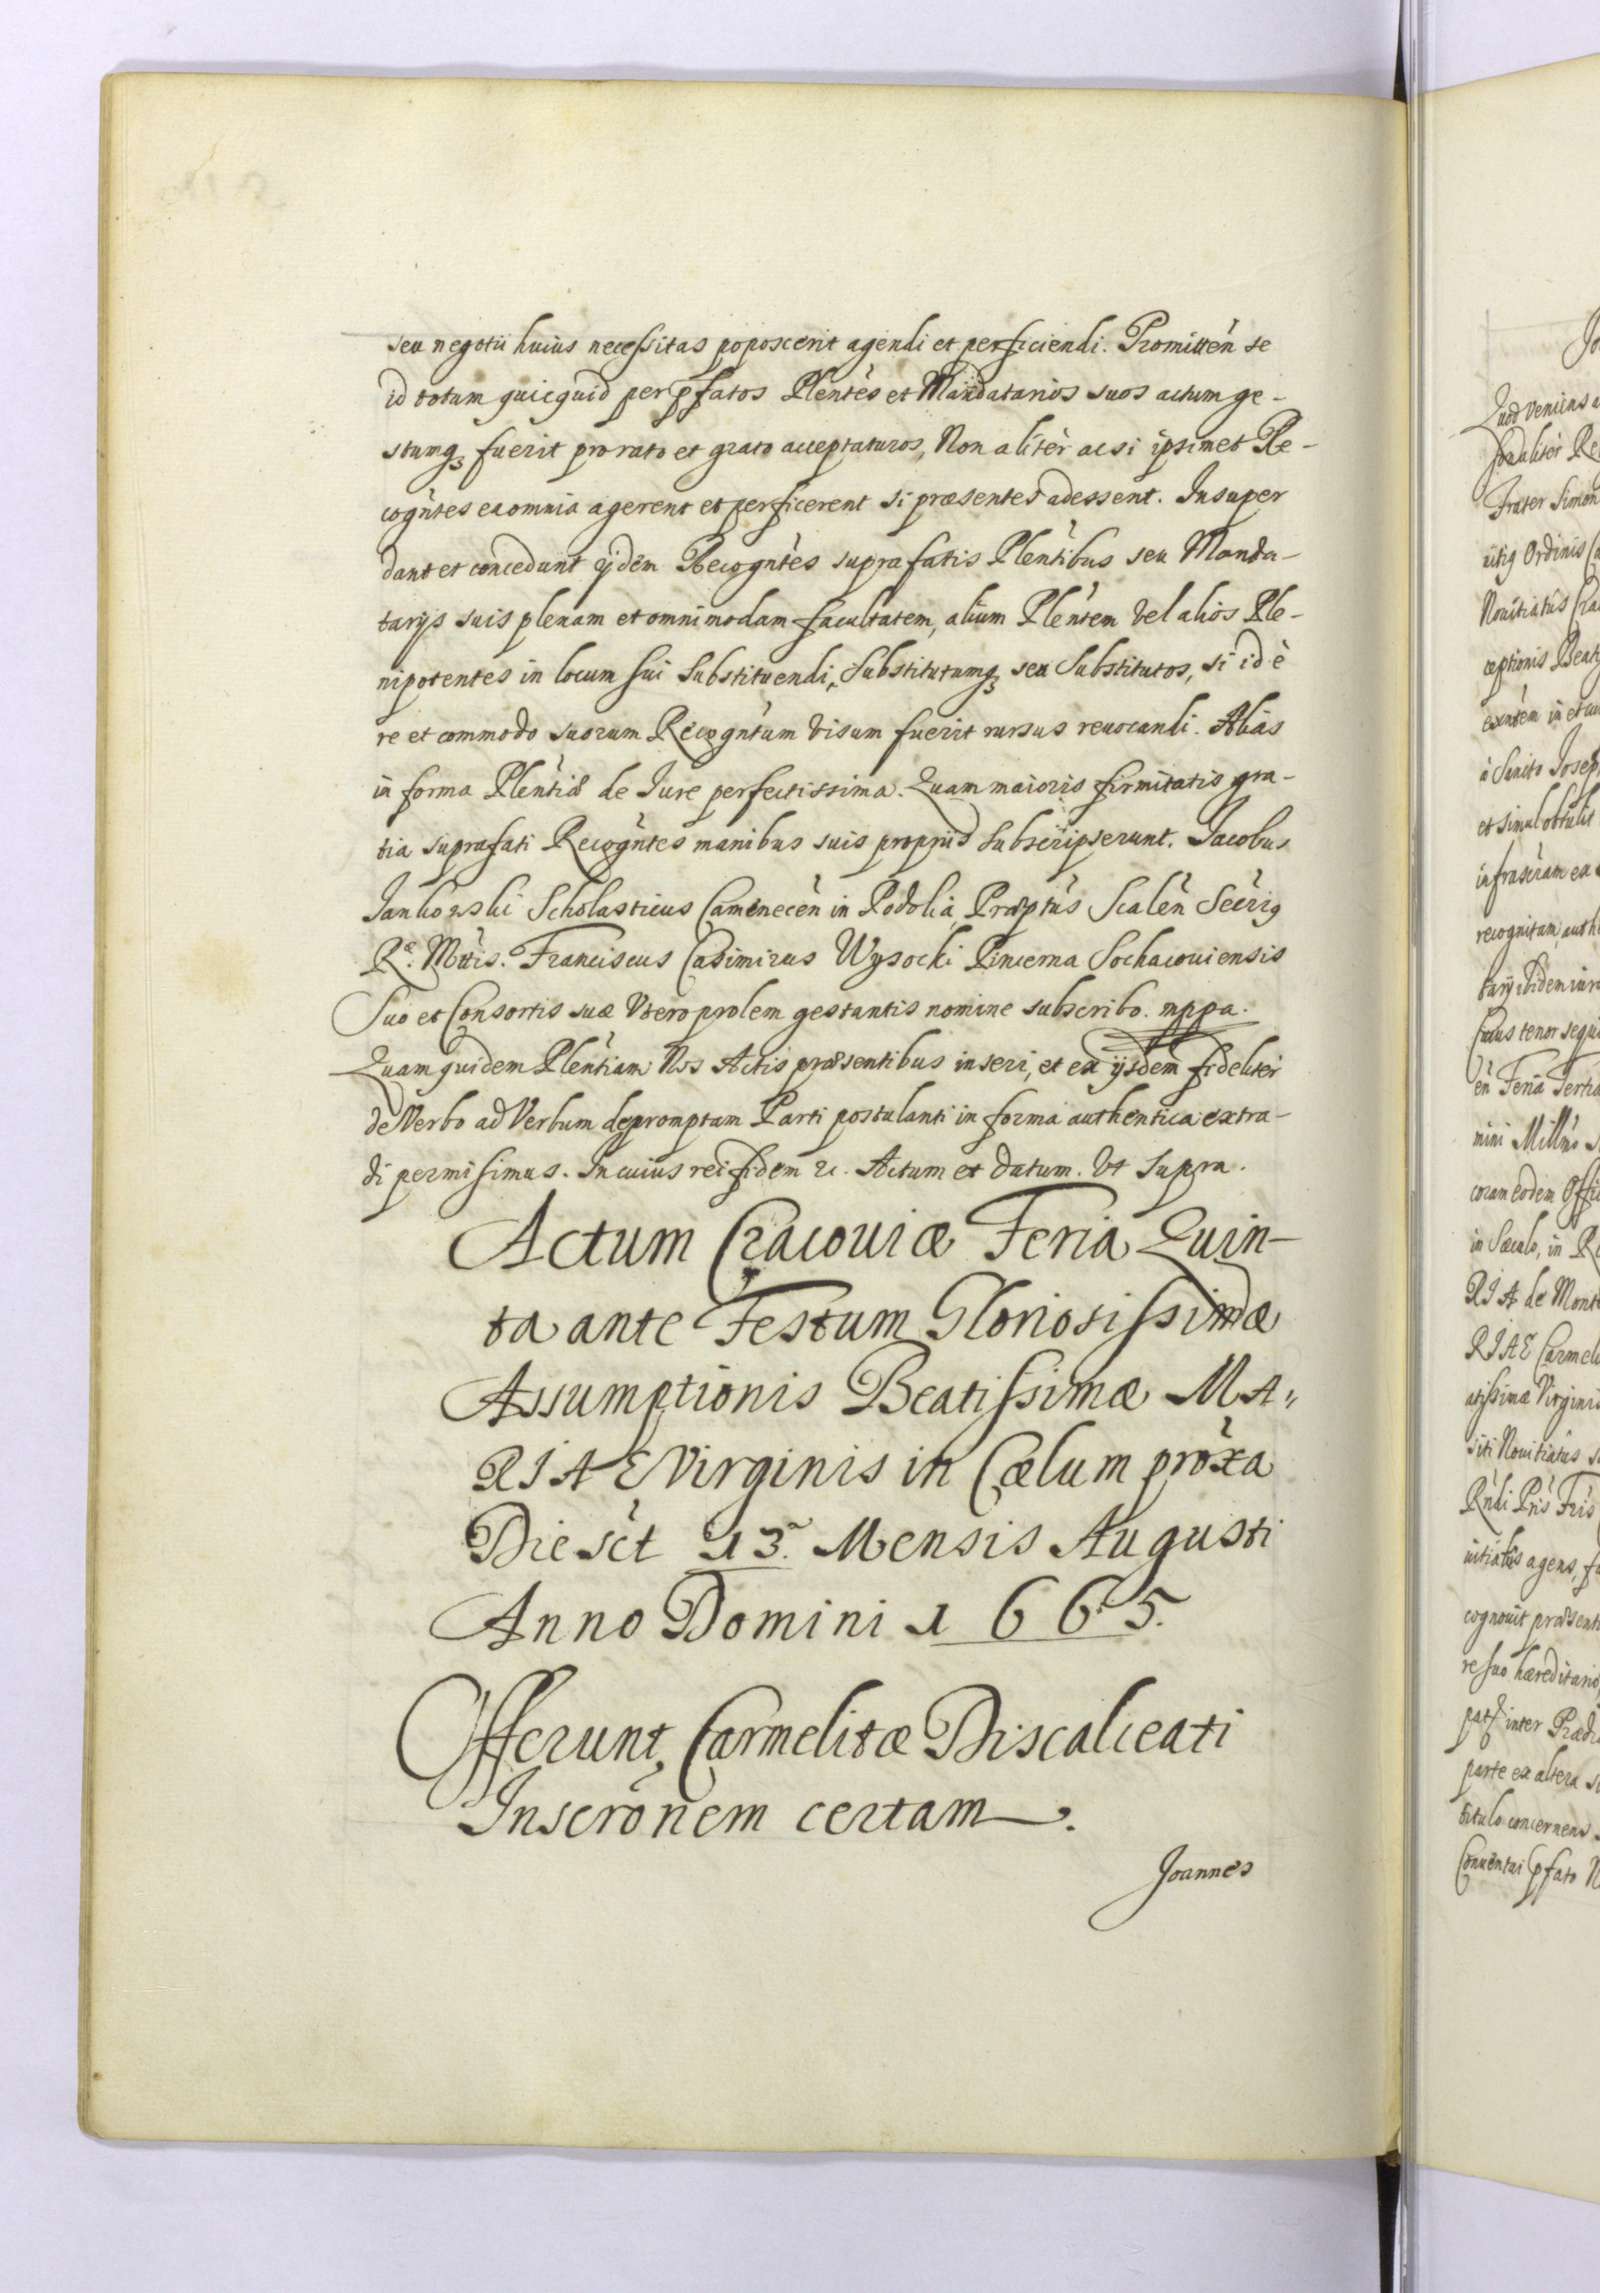 seu negotii huius necessitas poposcerit agendi et perficiendi. Promitten̄ se
id totum quicquid per p̱fatos Plen̄tes et Mandatarios suos actum ge-
stumq3 fuerit pro rato et grato acceptaturos, Non aliter ac si ipsimet Re-
cogn̄tes ea omnia agerent et perficerent si præsentes adessent. Insuper
dant et concedunt ijdem Recogn̄tes suprafatis Plen̄tibus seu Manda-
tarijs suis plenam et omnimodam facultatem, alium Plen̄tem vel alios Ple-
nipotentes in locum sui Substituendi, Substitutumq3 seu Substitutos, si id è
re et commodo suorum Recogn̄tum visum fuerit rursus reuocandi. Alias
in forma Plen̄tiæ de Iure perfectissima. Quam maioris firmitatis gra-
tia suprafati Recogn̄tes manibus suis proprijs Subscripserunt. Iacobus
Iankowski Scholasticus Camenecen̄ in Podolia, Præptus̄ Scalen̄ Secr̄iq
Ræ. Mtt̄is. Franciscus Casimirus Wysocki Pincerna Sochacouiensis
Suo et Consortis suæ Utero prolem gestantis nomine subscribo. mppa.
Quam quidem Plen̄tiam Nos Actis præsentibus inseri, et ex ijsdem fideliter
de Verbo ad Verbum depromptam Parti postulanti in forma authentica extra-
di permisimus. In cuius rei fidem &c. Actum et Datum. Vt Supra.
Actum Cracouiæ Feria Quin-
ta ante Festum Gloriosissimæ
Assumptionis Beatissimæ MA-
RIAE Virginis in Cælum prox̄a
Die sc̄t 13.a Mensis Augusti
Anno Domini 1665.
Offerunt, Carmelitæ Discalceati
Inscrōnem certam.
Joannes
Quod veniens
Frater Simon
Ordinis
infrascr̄am ex
Cuius tenor
en̄ Feria Tertia
coram eodem
in Sæculo, in
RIA de Monte
RIAE
atissimæ Virginis
Rn̄di Pr̄is Fr̄is
agens,
cognouit
re suo hæreditario,
inter
parte ex altera
titulo concernens
Conuentui p̱fato